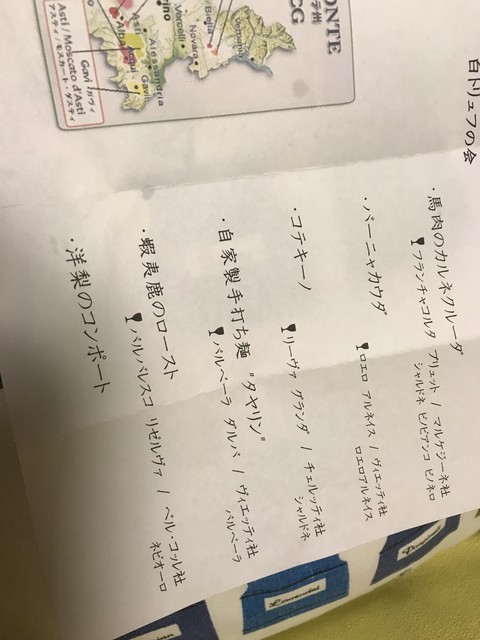 白トリュフの会
・馬肉のカルネクルーダ
フランチャコルタ ブリュット / マルケジーネ社
シャルドネ ピノビアンコ ピノネロ
・バーニャカウダ
ロエロ アルネイス / ヴィエッティ社
ロエロアルネイス
・コテキーノ
リーヴァ グランダ / チェルッティ社
シャルドネ
・自家製手打ち麺 "タヤリン"
バルベーラ ダルバ / ヴィエッティ社
バルベーラ
・蝦夷鹿のロースト
バルバレスコ リゼルヴァ / ペル・コッレ社
ネビオーロ
・洋梨のコンポート
ONTE
テ州
CG
Biella
Vercelli
Novara
rino
Asti
Alba
Acqui
Alessandria
Gavi
Gavi ガヴィ
Asti / Moscato d'Asti
アスティ / モスカート・ダスティ
Lavendel